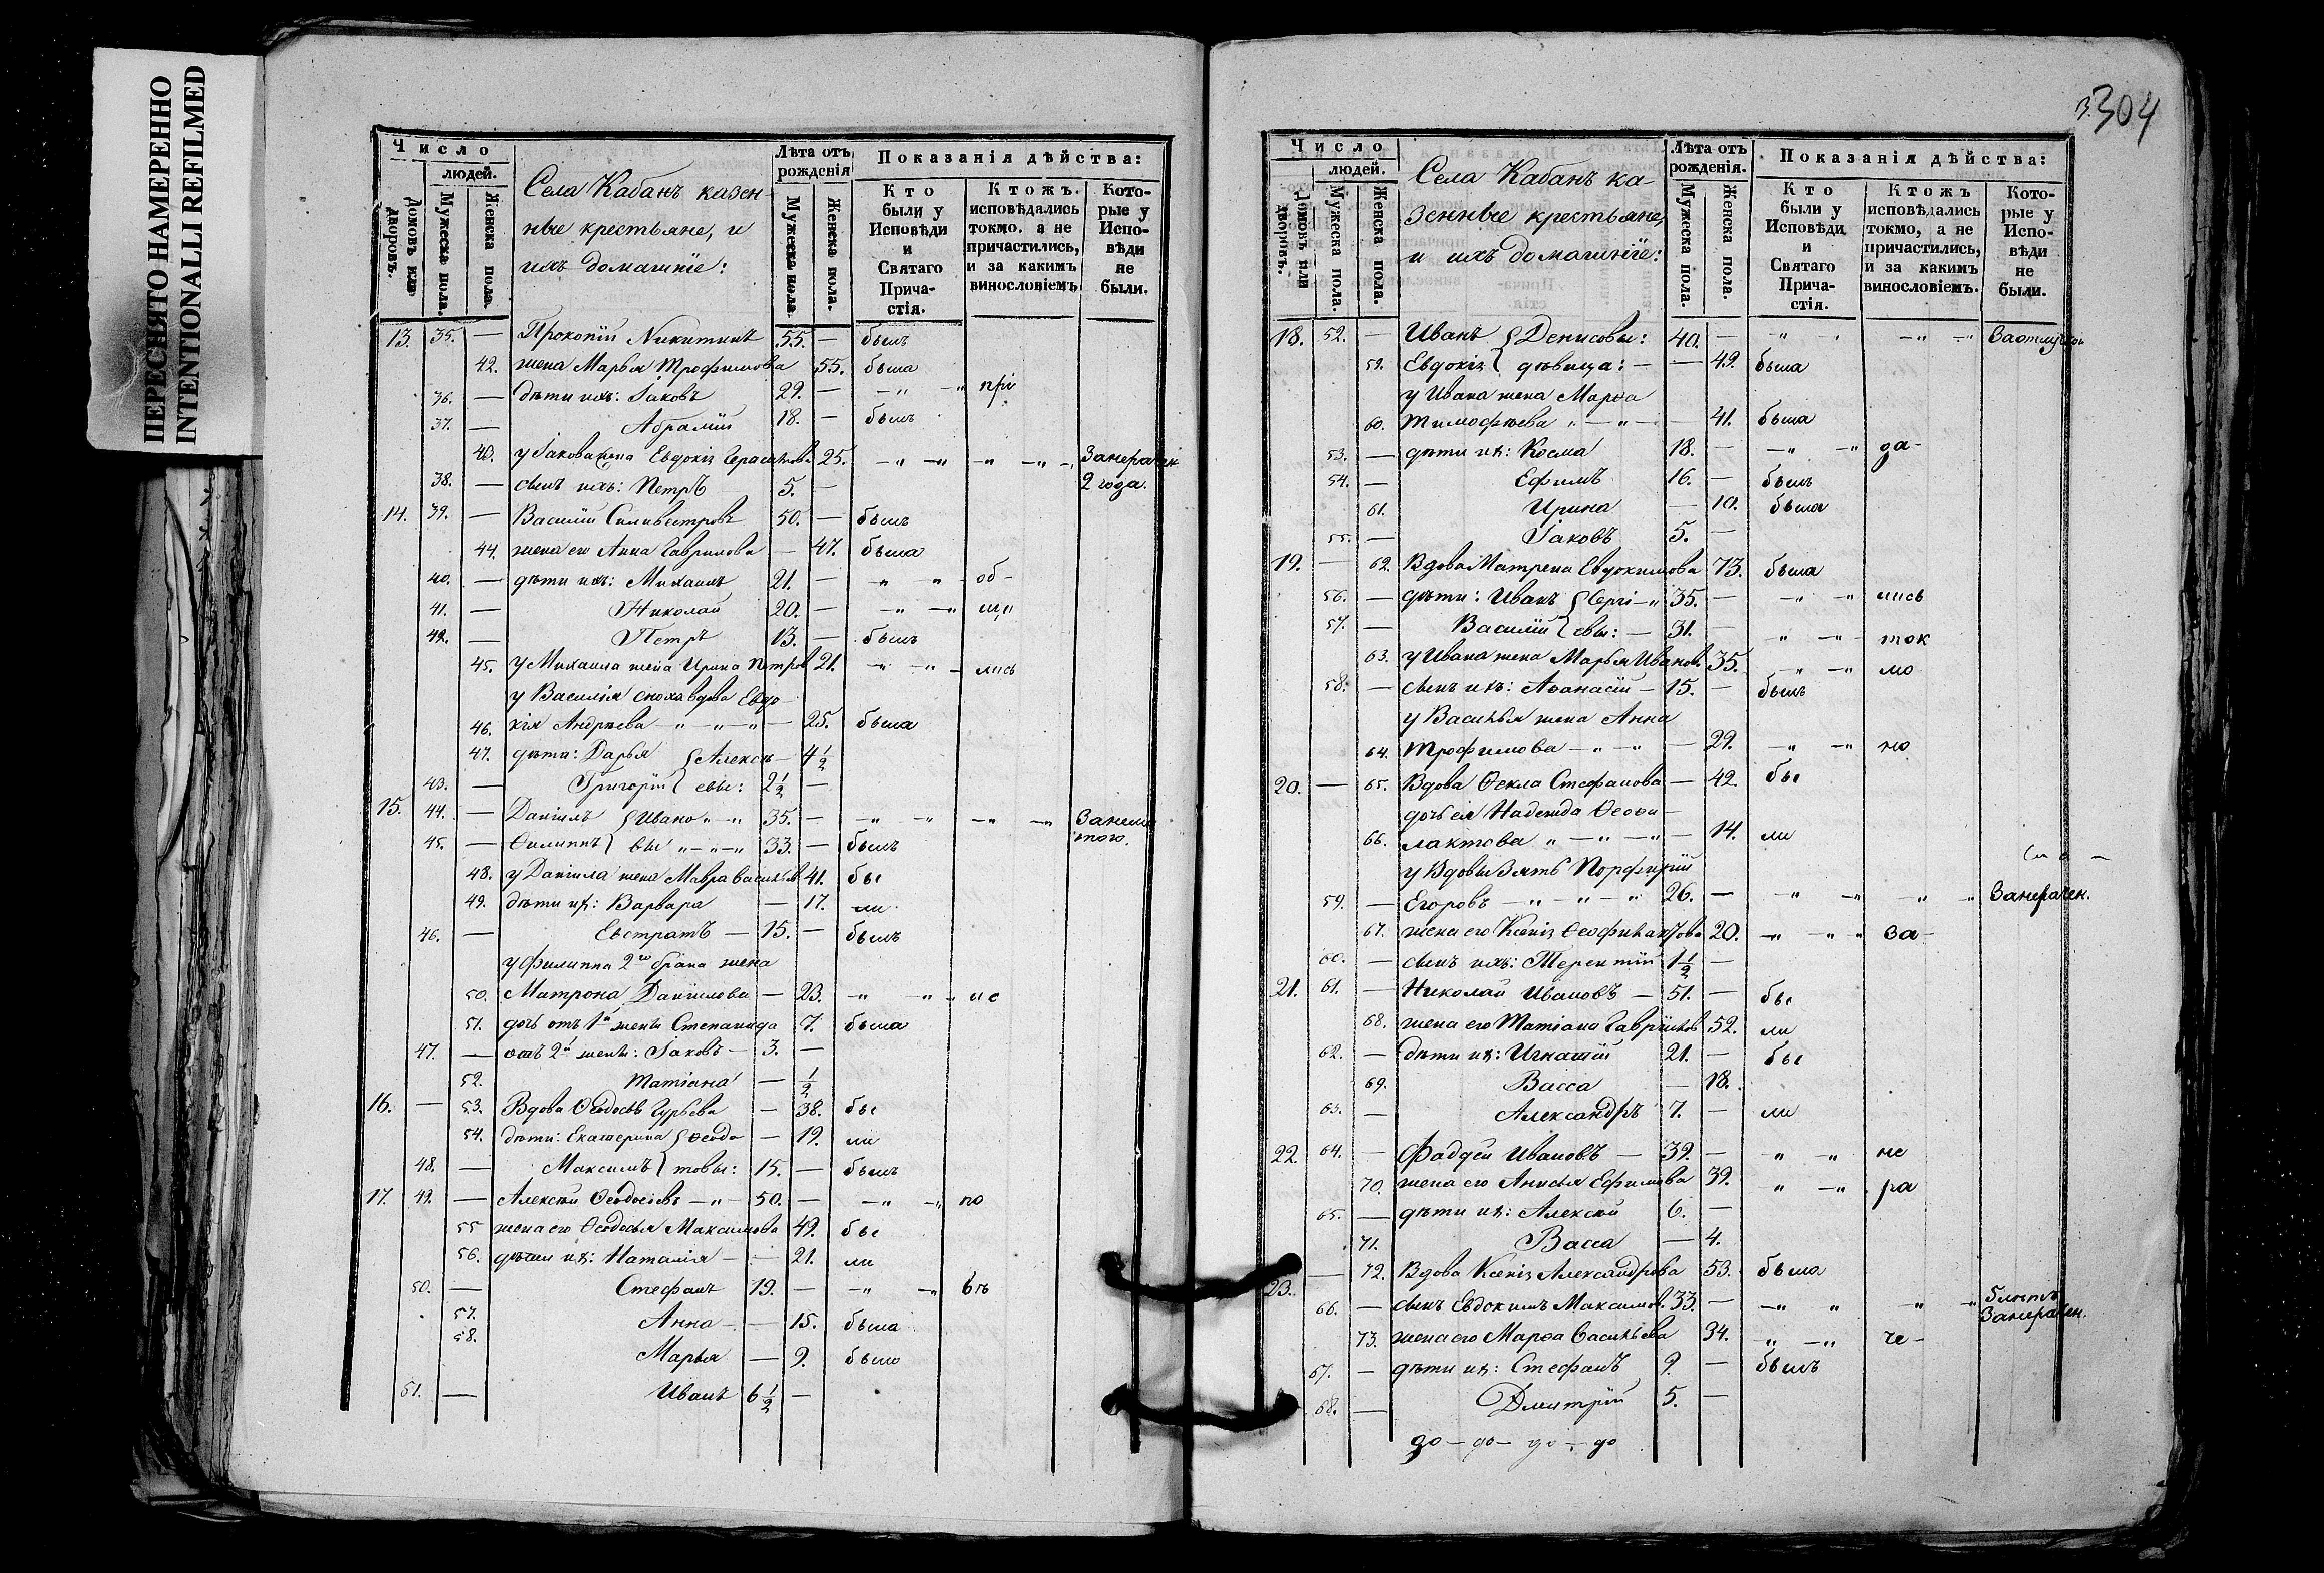 ПЕРЕСНЯТО НАМЕРЕННО
INTENTIONALLI REFILMED
Число
людей.
Домовъ или дворовъ.
Мужеска пола.
Женска пола.
Села Кабанъ казен-
ные крестьяне, и
ихъ домашніе:
Лѣта отъ рожденія
Мужеска пола.
Женска пола.
Показанія дѣйства:
Кто были у Исповѣди и Святаго Прича-стія.
Ктожъ. исповѣдались токмо. а не причастились, и за какимъ винословіемъ
Кото-рые у Испо-вѣди не были.
13. 35. — Прокопій Никитинъ 55. — былъ
42. жена Марья Трофимова 55. была
36. — дѣти ихъ: Іаковъ 29. — —"— —" прі
37. — Абрамій 18. — былъ
43. у Іакова жена Евдокія Герасимова 25. —" —" —" —" Занерачен
38. — сынъ ихъ: Петръ 5. — 2 года.
14. 39. — Василій Силивестровъ 50. — былъ
44. жена его Анна Гаврилова — 47. была
40. — дѣти ихъ: Михаилъ 21. — " " об-
41. — Николай 20. — —" —" щи
42. — Петръ 13. — былъ
45. у Михаила жена Ирина Петров 21. —" —" лись
у Василія сноха вдова Евдо-
46. кія Андреева —"—"—" — 25. была
47. дѣти: Дарья { Алексѣ— 4 1/2
43. — Григорій { евы: 2 1/2 —
15. 44. — Даніилъ { Ивано " —" 35. — —" —" —" —"
45. — Филиппъ { вы "—"—" 33. — былъ
48. у Даніила жена Мавра Васильев 41. бы
49. дѣти их: Варвара — 17. ли
46. — Евстратъ — 15. — былъ
у Филиппа 2го брака жена
50. Матрона Даніилова — 23. —" —" не
51. дочь отъ 1й жены Степанида 7. была
47. — отъ 2й жены: Іаковъ — 3. —
52. Татіана — 1/2
16. — 53. Вдова Ѳеодосья Гурьева — 38. бы
54. дѣти: Екатерина { Ѳеодо — 19. ли
48. — Максимъ { товы: 15. — былъ
17. 49. — Алексѣй Ѳеодосіевъ —"— 50. — —" —" по
55 жена его Ѳеодосья Максимова 49. бы
56. дѣти их: Наталія — — 21. ли
50. — Стефанъ 19. — —" —" вѣ
57. Анна — — 15. была
58. Марья — 9. была
51. — Иванъ 6 1/2 —
304
Число
людей.
Домовъ или дворовъ.
Мужеска пола.
Женска пола.
Села Кабанъ ка-
зенные крестьяне,
и ихъ домашніе:
Лѣта отъ рожденія.
Мужеска пола.
Женска пола.
Показанія дѣйства:
Кто были у Исповѣди и Святаго Прича-стія.
Ктожъ исповѣдались токмо, а не причастились, и за какимъ винословіемъ.
Кото-рые у Испо-вѣди не были.
18. 52. — Иванъ { Денисовы: 40. — —" " —" —"
59. Евдокія { дѣвица: — — 49. была
у Ивана жена Марѳа
60. Тимофѣева "—"— — 41. была
53. — дѣти их: Косма 18. — —" —" да-
54. — Ефимъ 16. — былъ
61. Ирина — 10. была
55. — Іаковъ 5. —
19. — 62. Вдова Матрена Евдокимова 73. была
56. — дѣти: Иванъ { Сергі—" 35. — —" —" лись
57. — Василій { евы: — 31. — " —" ток
63. у Ивана жена Марья Иванов. 35. —" —" мо
58. — сынъ их: Аѳанасій — 15. — былъ
у Василья жена Анна
64. Трофимова —"—" — 29. —" —" но
20. — 65. Вдова Ѳекла Стефанова — 42. бы
дочь ея Надежда Ѳеофи-
66. лактова "—"—" — 14. ли
у Вдовы Зять Порфирій
59. — Егоровъ —"—"—" 26. — —" —" —" " Занерачен.
67. жена его Ксенія Ѳеофилактова 20. —" —" за-
60. — сынъ ихъ: Терентій 1 1/2 —
21. 61. — Николай Ивановъ — 51. — бы
68. жена его Татіана Гаврилов 52. ли
62. — дѣти их: Игнатій 21. — бы
69. Васса — 18.
63. — Александръ 7. — ли
22. 64. — Фаддей Ивановъ — 39. — " —" не
70. жена его Анисья Ефимова 39. " —" ра
65. — дѣти их: Алексѣй 6. —
71. Васса — 4.
23. — 72. Вдова Ксенія Александрова 53. была
66. — сынъ Евдокимъ Максимов. 33. — —" " " —" 5 лѣтъ Занерачен.
73. жена его Марѳа Васильева 34. " —" че-
67. — дѣти их: Стефанъ 9. — былъ
68. — Дмитрій 5. —
до — до — до — до